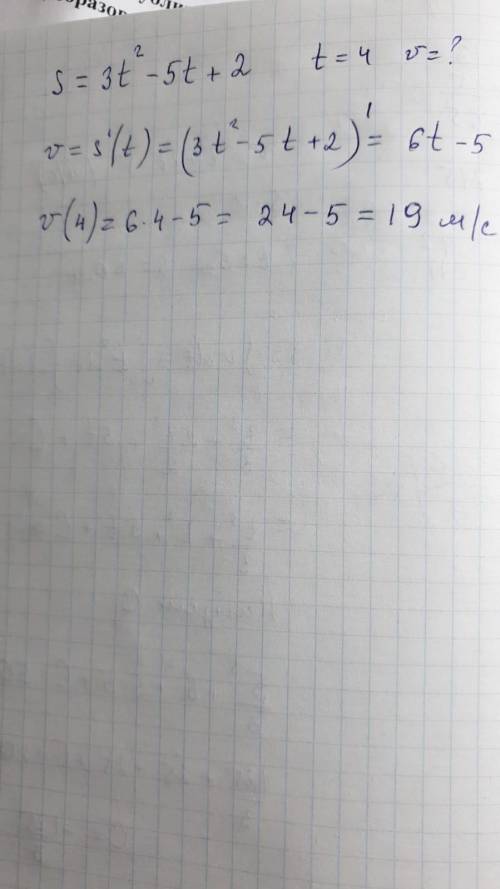 S = 3t² - 5t + 2 t = 4 v = ?
v = s'(t) = (3t² - 5t + 2)' = 6t - 5
v(4) = 6·4 - 5 = 24 - 5 = 19 м/с